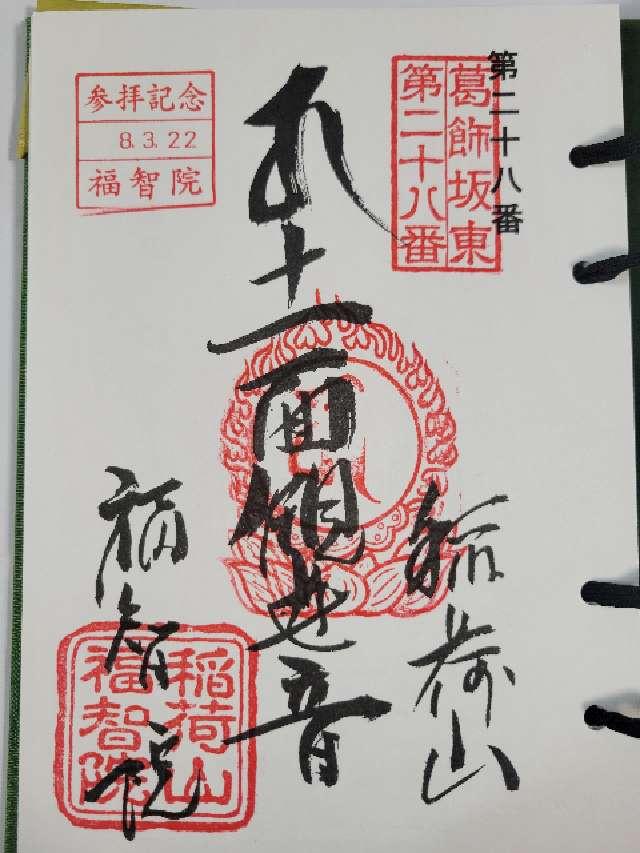 第二十八番
葛飾坂東
第二十八番
稲荷山
十一面観世音
参拝記念
8.3.22
福智院
福智院
稲荷山
福智院